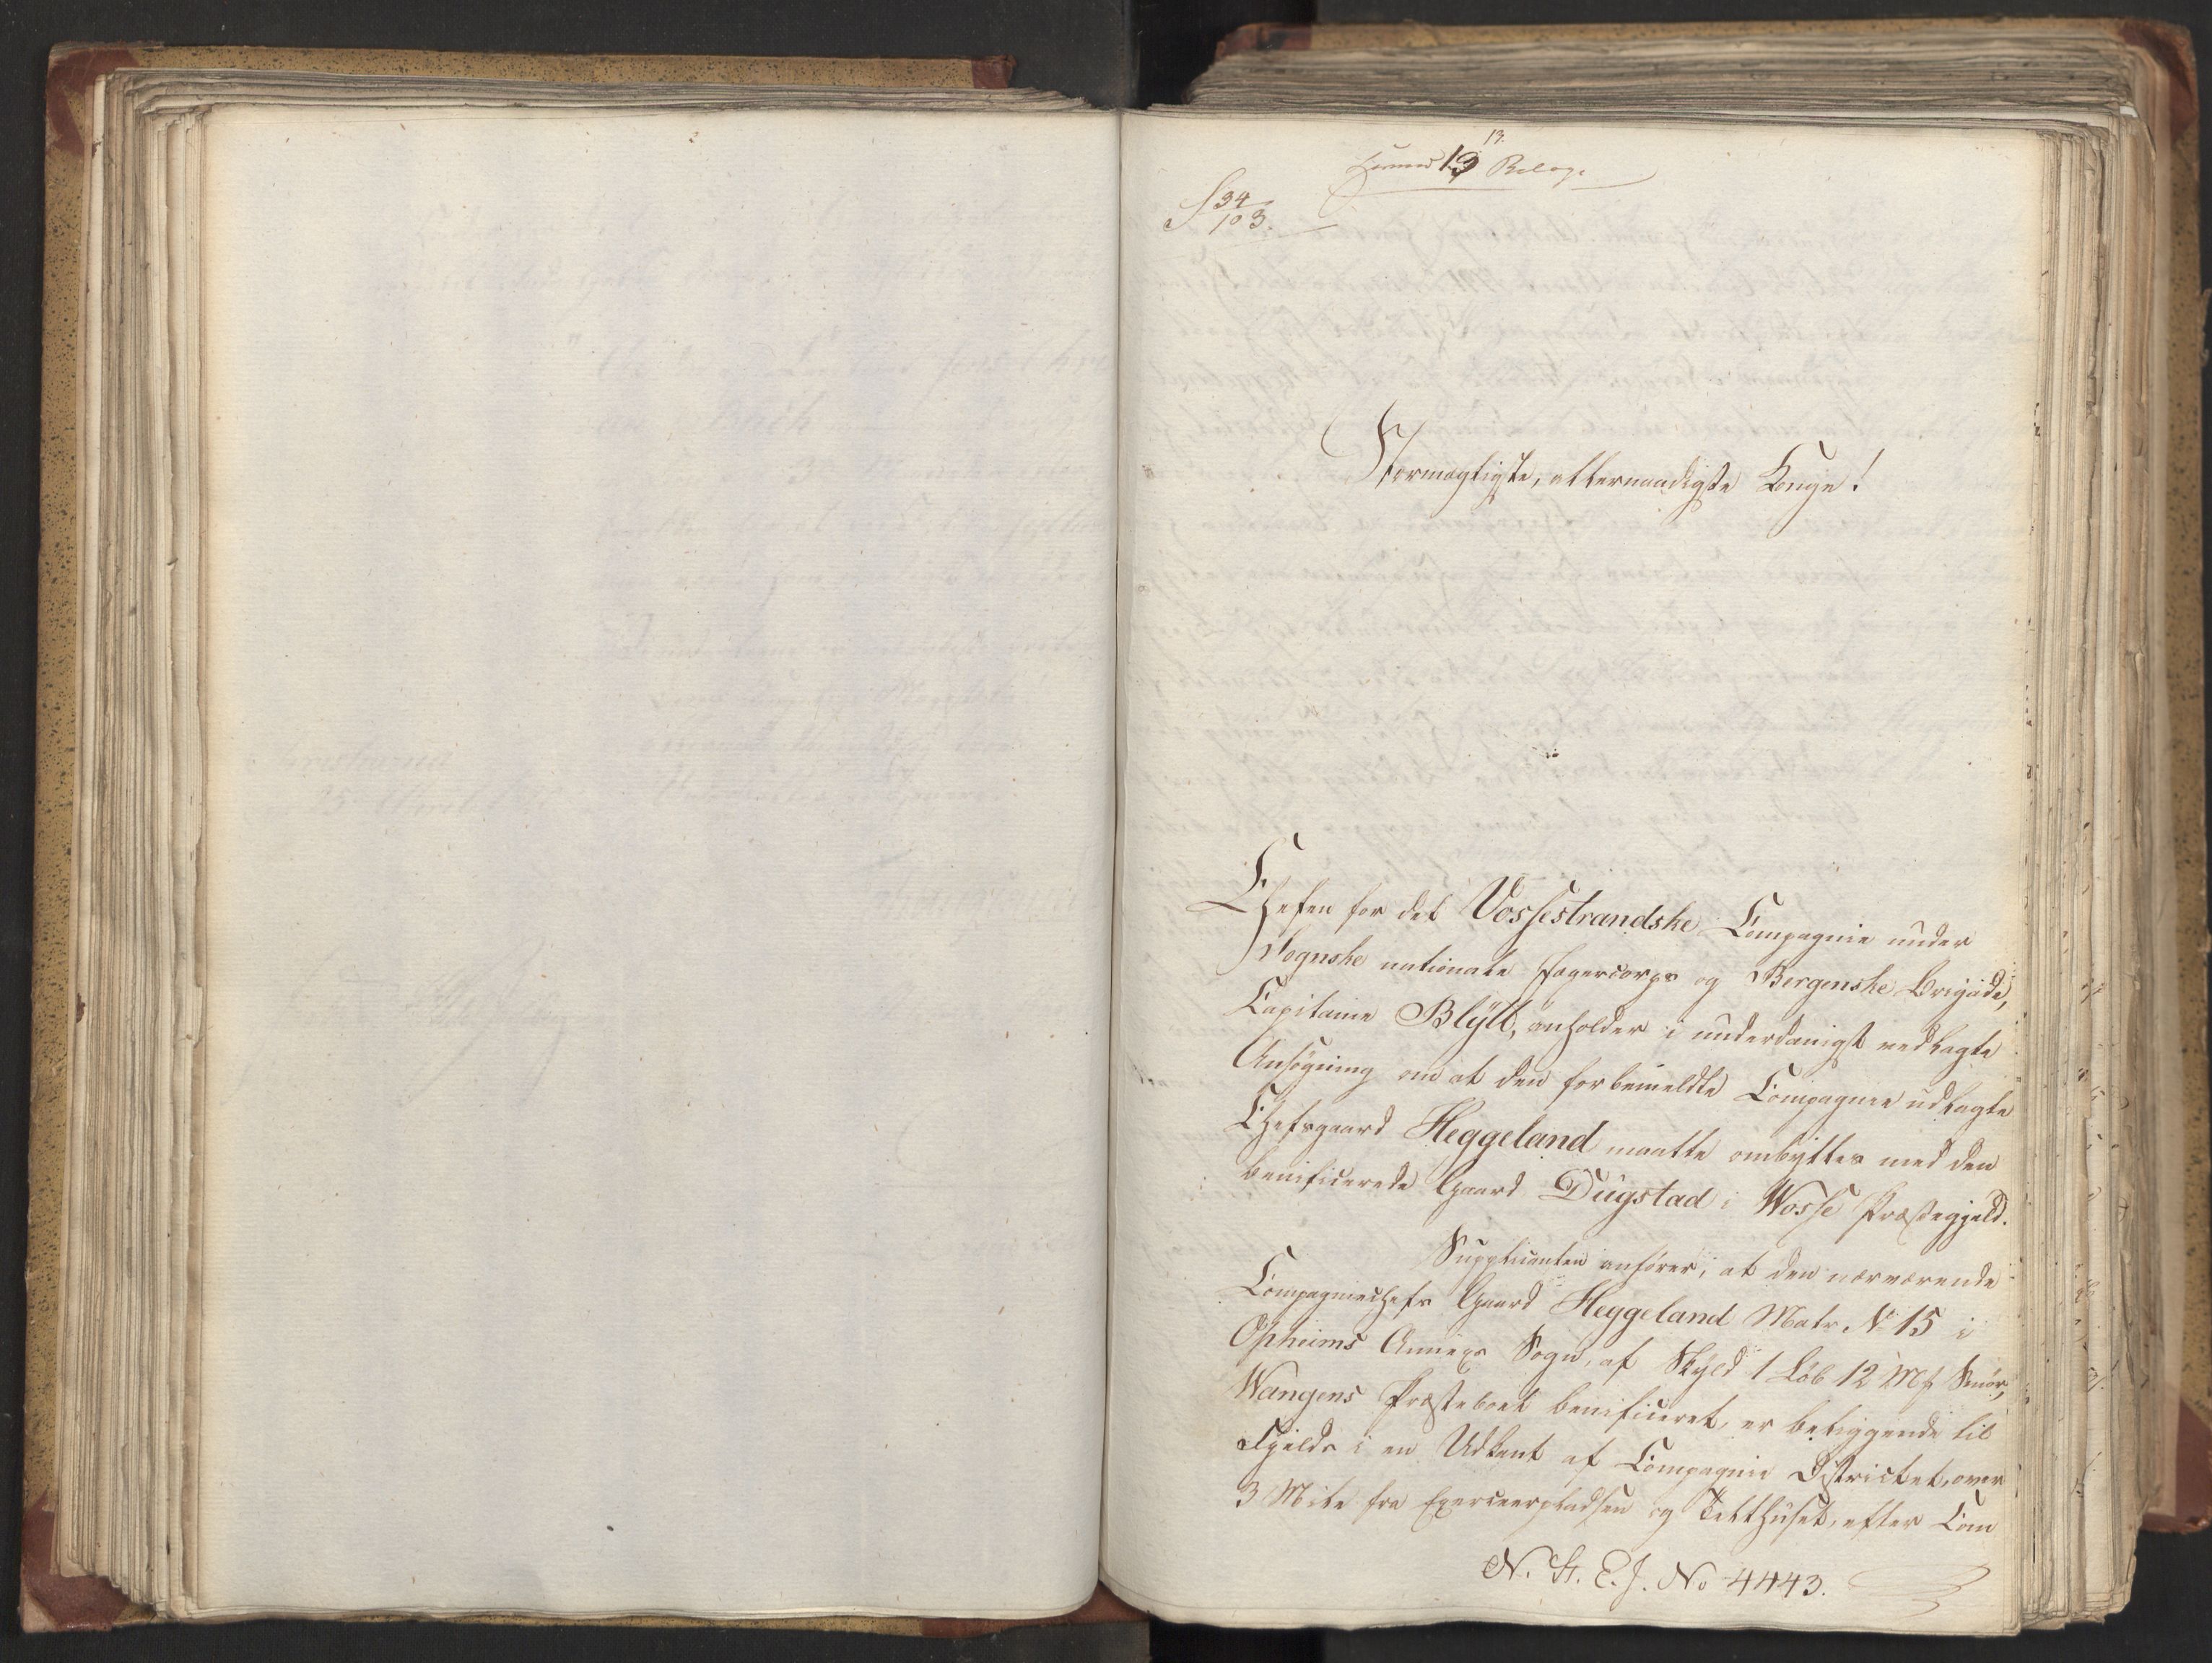 13.
13 Bilage
S 34
103.
Stormægtigste, allernaadigste Konge!
Chefen for det Vossestrandske Compagnie under
Sognske nationale Jægercorps og Bergenske Brigade,
Capitaine Blÿtt, anholder i underdanigst vedlagte
Ansøgning om at den for bemeldte Compagnie udlagte
Chefsgaard Heggeland maatte ombyttes med den
benificerede Gaard Dügstad i Wosse Præstegjeld.
Supplicanten anfører, at den nærværende
Compagniechefs Gaard Heggeland Matr. No 15 i
Opheims Annexs Sogn, af Skyld 1 Løb 12 Mk Smør,
Wangens Præsteboel benificeret, er beliggende til
Fjelds i en Udkant af Compagnie Districtet, over
3 Mile fra Exerceerpladsen og Telthuset, efter Com
N. St. E. J. No 4443.